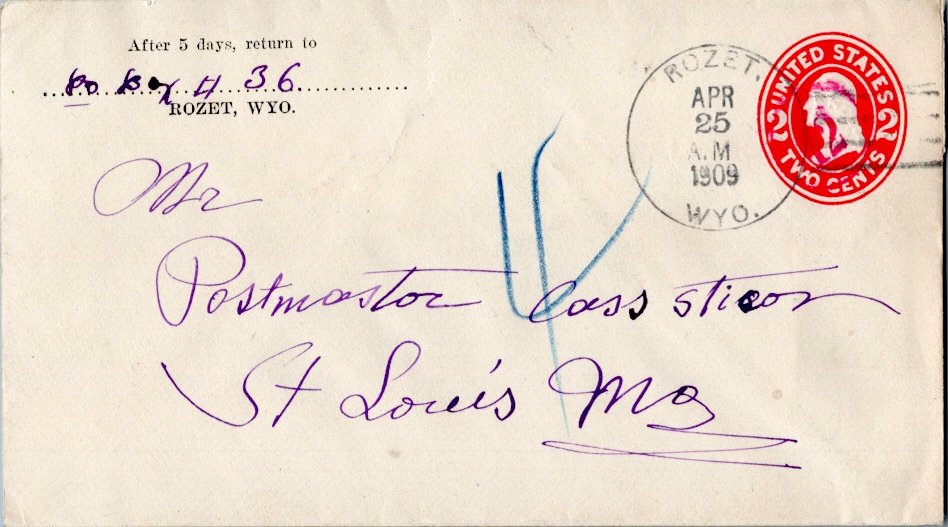 After 5 days, return to
Box 436
ROZET, WYO.
ROZET,
APR
25
A.M
1909
WYO.
UNITED STATES
2 2
TWO CENTS
Mr
Postmastor Cass
St Louis Mo